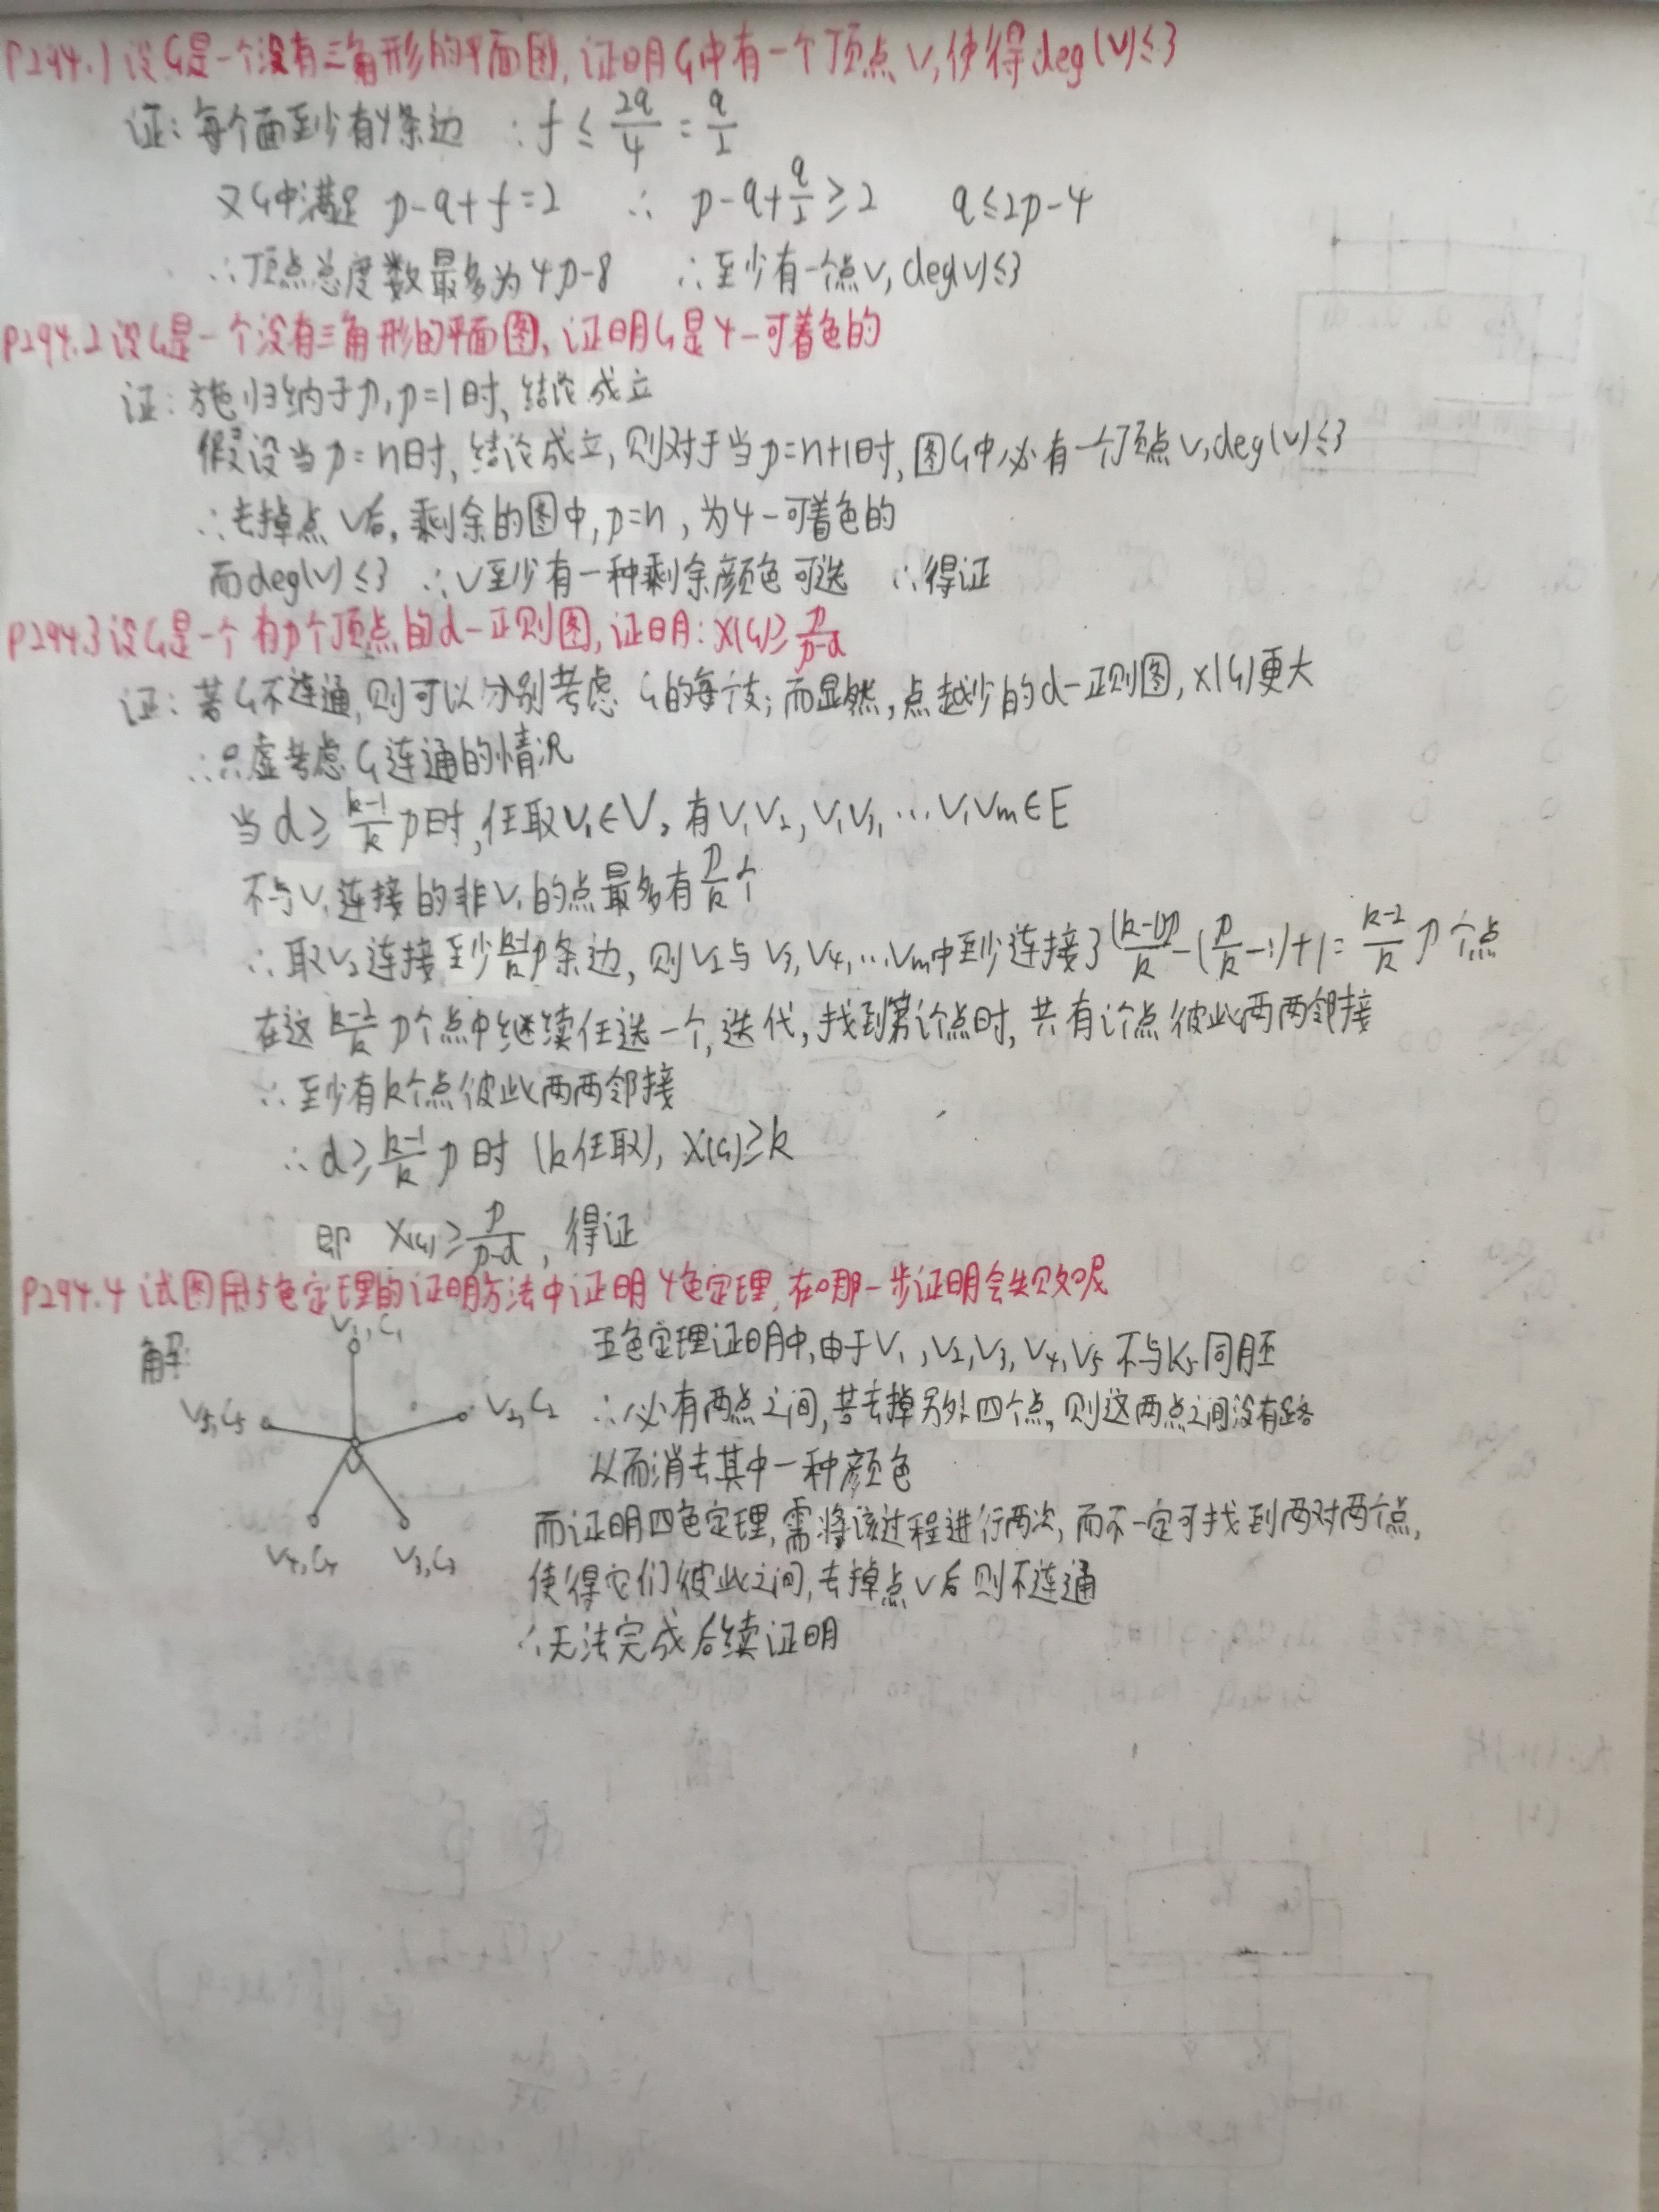 P294.1 设G是一个没有三角形的平面图,证明G中有一个顶点V,使得deg(V)≤3
证:每个面至少有4条边 ∴ f ≤ 2q/4 = q/2
又G中满足 p-q+f=2 ∴ p-q+q/2≥2 q≤2p-4
∴顶点总度数最多为4p-8 ∴至少有一个点V,deg(V)≤3
P294.2 设G是一个没有三角形的平面图,证明G是4-可着色的
证:施归纳于p,p=1时,结论成立
假设当p=n时,结论成立,则对于当p=n+1时,图G中必有一个顶点V,deg(V)≤3
∴去掉点V后,剩余的图中,p=n,为4-可着色的
而deg(V)≤3 ∴V至少有一种剩余颜色可选 ∴得证
P294.3 设G是一个有p个顶点的d-正则图,证明:X(G)≥p/(p-d)
证:若G不连通,则可以分别考虑G的每个支;而显然,点越少的d-正则图,X(G)更大
∴只需考虑G连通的情况
当d≥(k-1)/k p时,任取V₁∈V,有V₁V₂,V₁V₃,…V₁Vm∈E
不与V₁连接的非V₁的点最多有p/k个
∴取V₂连接至少(k-1)/k p条边,则V₂与V₃,V₄,…Vm中至少连接了(k-1)p/k-(p/k-1)+1=(k-2)/k p个点
在这(k-2)/k p个点中继续任选一个,迭代,找到第i个点时,共有i个点彼此两两邻接
∴至少有k个点彼此两两邻接
∴d≥(k-1)/k p时(k任取),X(G)≥k
即 X(G)≥p/(p-d),得证
P294.4 试图用5色定理的证明方法中证明4色定理,在哪一步证明会失败呢
解:
V₁,C₁
V₅,C₅
V₂,C₂
V
V₄,C₄
V₃,C₃
五色定理证明中,由于V₁,V₂,V₃,V₄,V₅不与K₅同胚
∴必有两点之间,若去掉另外四个点,则这两点之间没有路
从而消去其中一种颜色
而证明四色定理,需将该过程进行两次,而不一定可找到两对两个点,
使得它们彼此之间,去掉点V后则不连通
∴无法完成后续证明